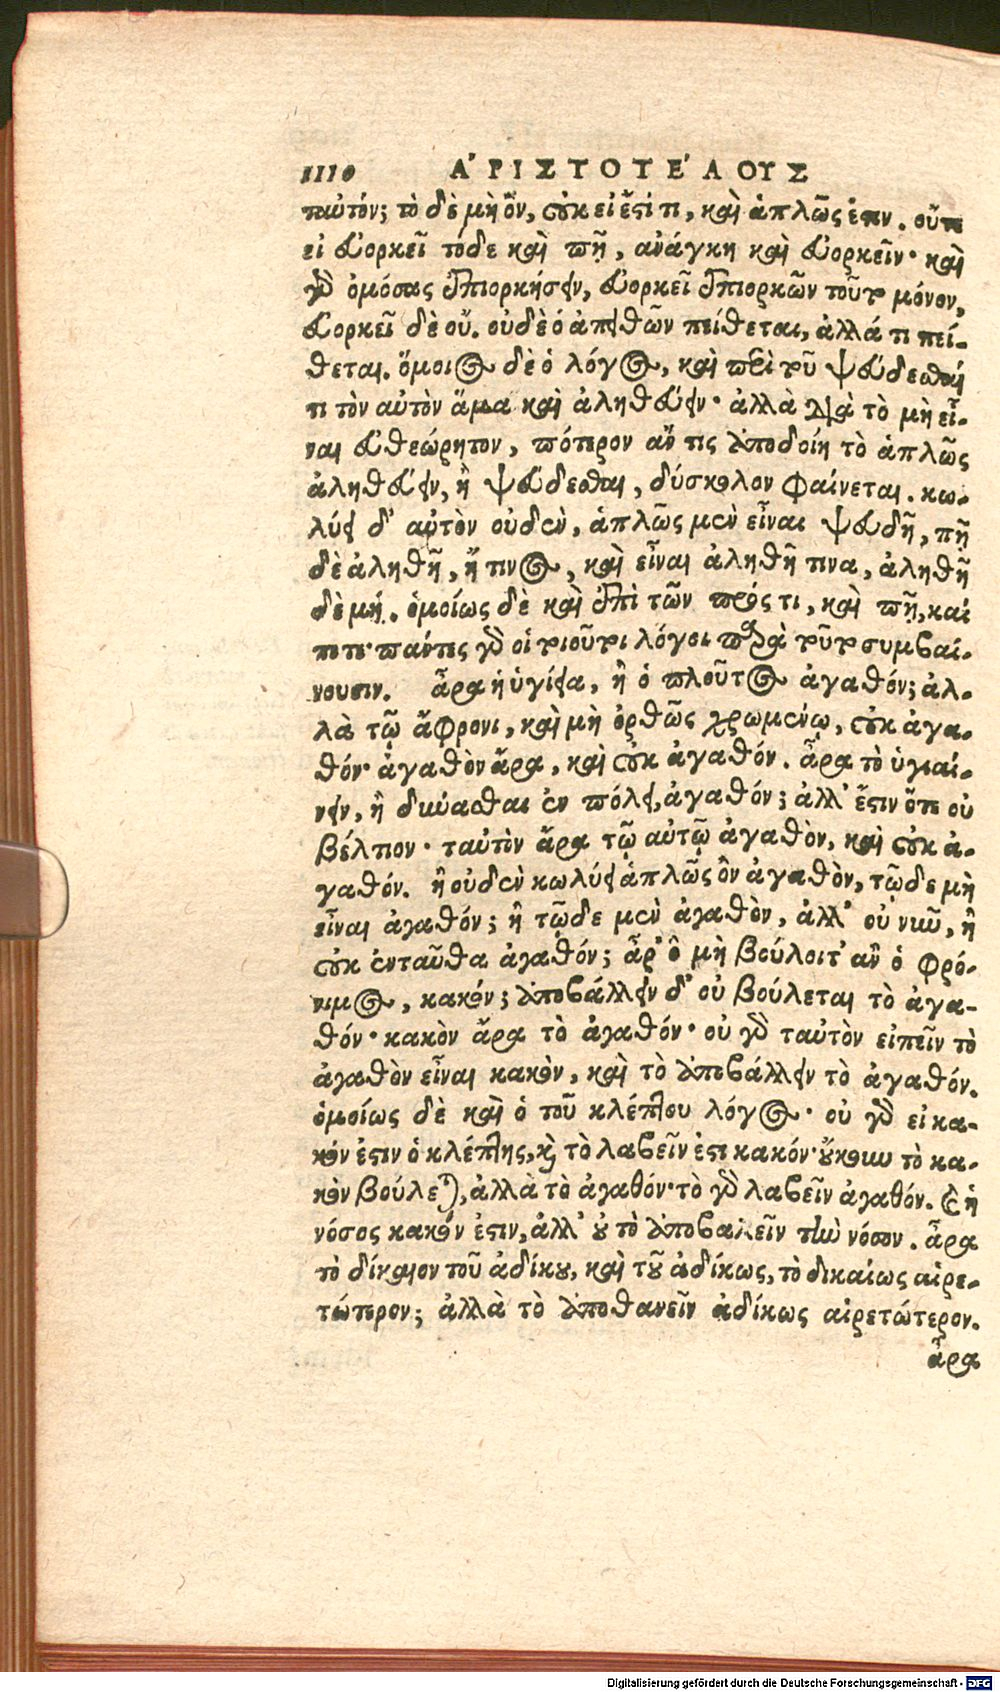 1110 ἈΡΙΣΤΟΤΈΛΟΥΣ
ταὐτόν; τὸ δὲ μὴ ὂν, οὐκ εἰ ἔστί τι, καὶ ἁπλῶς ἔστιν. οὔτε
εἰ εὐορκεῖ τόδε καὶ πῇ, ἀνάγκη καὶ εὐορκεῖν· καὶ
γὸ ὀμόσας ἐπιορκήσειν, εὐορκεῖ ἐπιορκῶν τοῦτο μόνον,
εὐορκεῖ δὲ οὔ. οὐδὲ ὁ ἀπειθῶν πείθεται, ἀλλά τι πεί-
θεται. ὅμοιος δὲ ὁ λόγος, καὶ περὶ τοῦ ψεύδεσθαί
τι τὸν αὐτὸν ἅμα καὶ ἀληθεύειν· ἀλλὰ διὰ τὸ μὴ εἶ-
ναι εὐθεώρητον, πότερον ἄν τις ἀποδοίη τὸ ἁπλῶς
ἀληθεύειν, ἢ ψεύδεσθαι, δύσκολον φαίνεται. κω-
λύει δ' αὐτὸν οὐδὲν, ἁπλῶς μὲν εἶναι ψευδῆ, πῇ
δὲ ἀληθῆ, ἤ τινος, καὶ εἶναι ἀληθῆ τινα, ἀληθῆ
δὲ μή. ὁμοίως δὲ καὶ ἐπὶ τῶν πρός τι, καὶ πῇ, καί
ποτε· πάντες γὸ οἱ τοιοῦτοι λόγοι παρὰ τοῦτο συμβαί-
νουσιν. ἆρα ἡ ὑγίεια, ἢ ὁ πλοῦτος ἀγαθόν; ἀλ-
λὰ τῷ ἄφρονι, καὶ μὴ ὀρθῶς χρωμένῳ, οὐκ ἀγα-
θόν· ἀγαθὸν ἄρα, καὶ οὐκ ἀγαθόν. ἆρα τὸ ὑγιαί-
νειν, ἢ δύνασθαι ἐν πόλει, ἀγαθόν; ἀλλ' ἔστιν ὅτε οὐ
βέλτιον· ταὐτὸν ἄρα τῷ αὐτῷ ἀγαθὸν, καὶ οὐκ ἀ-
γαθόν. ἢ οὐδὲν κωλύει ἁπλῶς ὂν ἀγαθὸν, τῷδε μὴ
εἶναι ἀγαθόν; ἢ τῷδε μὲν ἀγαθὸν, ἀλλ' οὐ νῦν, ἢ
οὐκ ἐνταῦθα ἀγαθόν; ἆρ' ὃ μὴ βούλοιτ' ἂν ὁ φρό-
νιμος, κακόν; ἀποβάλλειν δ' οὐ βούλεται τὸ ἀγα-
θόν· κακὸν ἄρα τὸ ἀγαθόν· οὐ γὸ ταὐτὸν εἰπεῖν τὸ
ἀγαθὸν εἶναι κακὸν, καὶ τὸ ἀποβάλλειν τὸ ἀγαθόν.
ὁμοίως δὲ καὶ ὁ τοῦ κλέπτου λόγος· οὐ γὸ εἰ κα-
κόν ἐστιν ὁ κλέπτης, καὶ τὸ λαβεῖν ἐστι κακόν· οὔκουν τὸ κα-
κὸν βούλεται, ἀλλὰ τὸ ἀγαθόν· τὸ γὸ λαβεῖν ἀγαθόν. καὶ ἡ
νόσος κακόν ἐστιν, ἀλλ' οὐ τὸ ἀποβαλεῖν τὴν νόσον. ἆρα
τὸ δίκαιον τοῦ ἀδίκου, καὶ τοῦ ἀδίκως, τὸ δικαίως αἱρε-
τώτερον; ἀλλὰ τὸ ἀποθανεῖν ἀδίκως αἱρετώτερον.
ἆρα
Digitalisierung gefördert durch die Deutsche Forschungsgemeinschaft - DFG